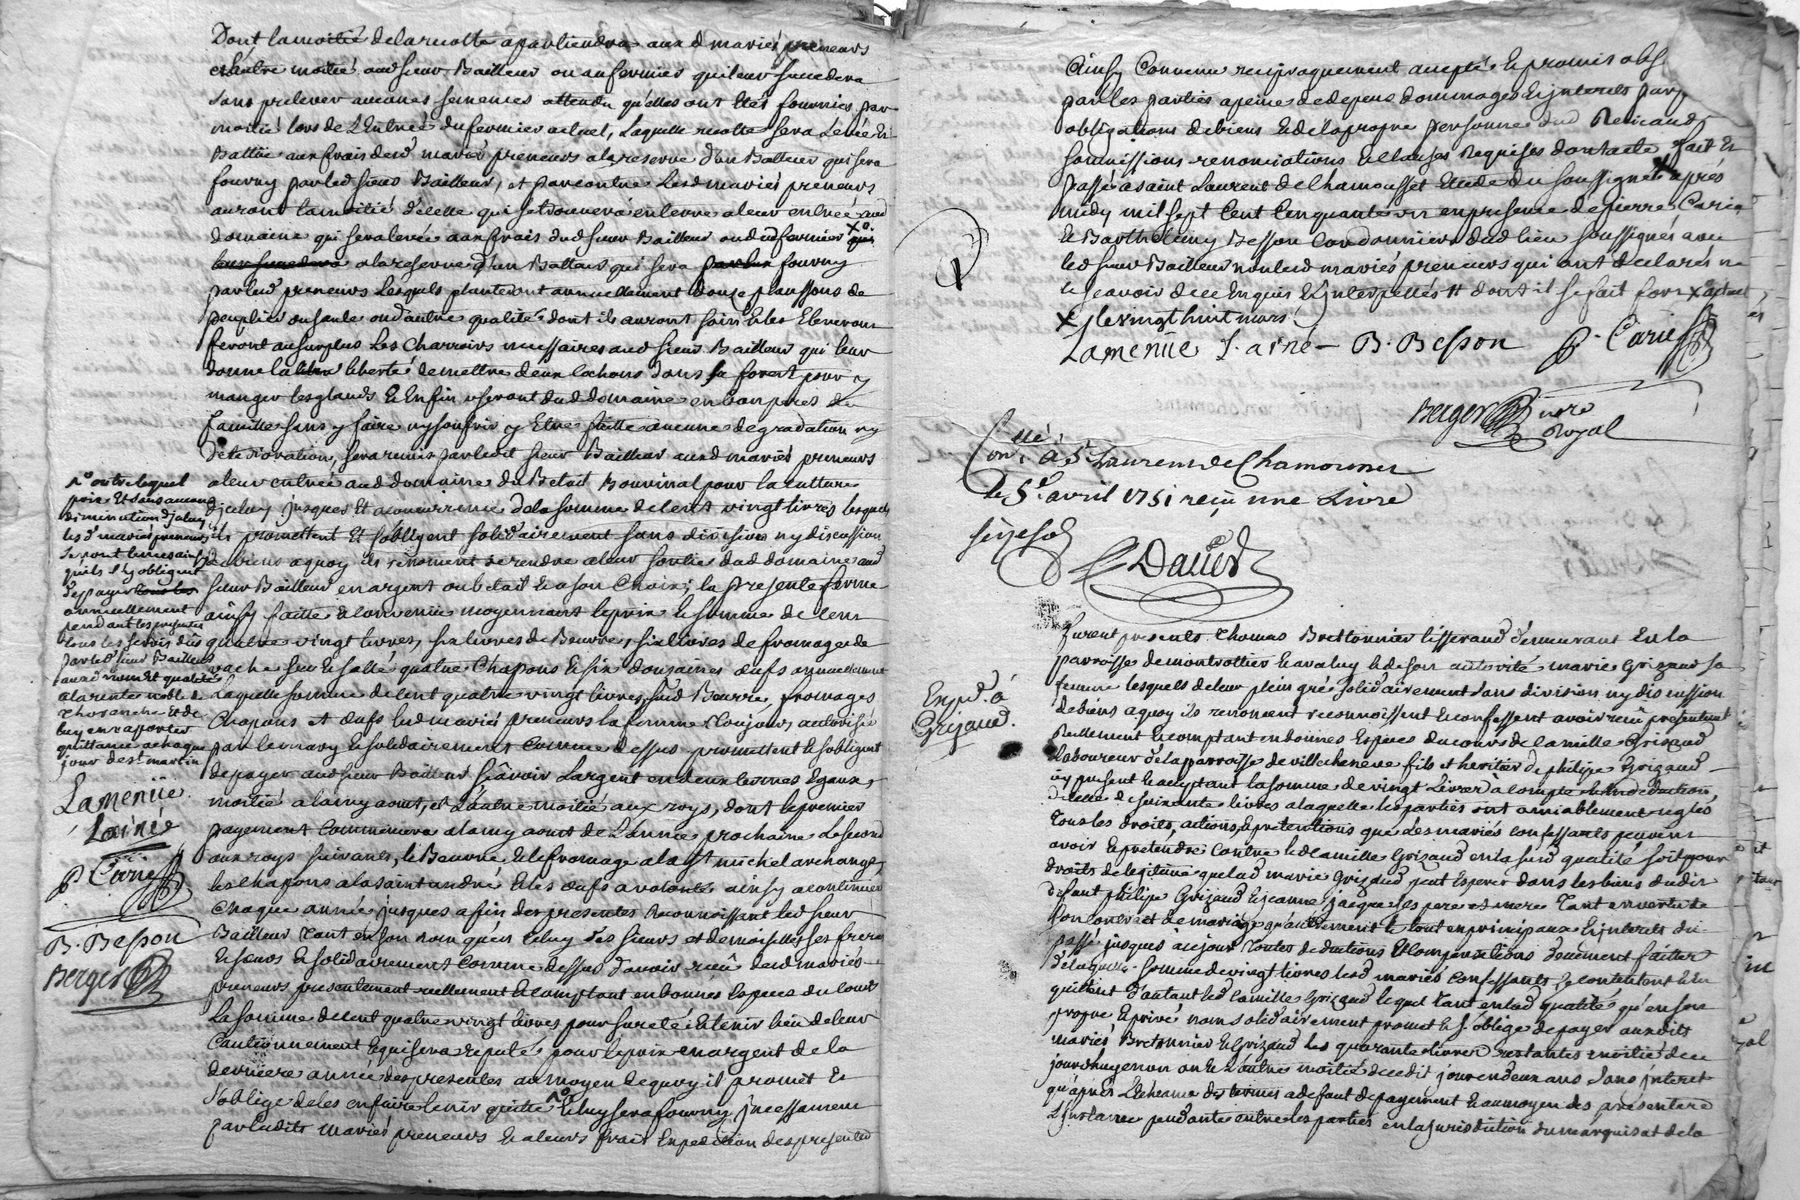 Dont la moitié de la recolte apartiendra aux d mariés preneurs
et lautre moitié aud sieur Bailleur ou au fermier qui leur succedera
sans prelever aucunes semences attendu qu'elles ont étés fournies par
moitié lors de L'Entrée du fermier actuel, Laquelle recolte sera Levée Et
Battüe aux frais desd mariés preneurs a la reserve d'un Batteur qui sera
fourny par led sieur Bailleur, et par contre Lesd mariés preneurs
auront la moitié d'icelle qui se trouvera en terre a leur entrée aud
domaine qui sera levée aux frais dud sieur Bailleur ou dud fermier
a la reserve d'un Batteur qui sera fourny
par lesd preneurs Lesquels planteront annuellement douze plansons de
peuplier ou saule ou d'autre qualité dont ils auront soin Et les Eleveront
feront au surplus Les Charrois necessaires aud sieur Bailleur qui leur
donne la liberté de mettre deux cochons dans sa forest pour y
manger les glands Et Enfin useront dud domaine en bon peres de
famille sans y faire ny soufrir y Etre faitte aucune degradation ny
deterioration, sera remis par ledit sieur Bailleur auxd mariés preneurs
a leur entrée aud domaine du Betail Bouvinal pour la culture
d'jceluy jusques Et a concurrence de la somme de cent vingt livres lesquels
ils promettent Et s'obligent solidairement sans division ny discussion
de biens a quoy ils renoncent de rendre a leur sortie dud domaine aud
sieur Bailleur en argent ou betail Et a son Choix; la presente ferme
ainsy faitte Et convenüe moyennant le prix Et somme de cent
quatre vingt livres, six livres de Beurre, six livres de fromage de
vache sec Et sallé quatre Chapons Et six douzaines d'œufs annuellement
Laquelle somme de cent quatre vingt livres, susd Beurre, fromages
Chapons et œufs lesd mariés preneurs la femme Toujours autorisée
par le mary Et solidairement comme dessus promettent Et s'obligent
de payer aud sieur Bailleur sçavoir L'argent en deux termes Egaux,
moitié a la my aout, et L'autre moitié aux roys, dont le premier
payement Commencera a la my aout de L'année prochaine Le second
aux roys suivants, le Beurre Et le fromage a la st michel archange,
les chapons a la saint andré Et les œufs a volonté ainsy a continuer
Chaque année jusques a fin des presentes Reconnoissant led sieur
Bailleur Tant en son nom qu'en celuy des sieurs et demoiselles ses freres
Et sœurs Et solidairement comme dessus d'avoir reçu desd mariés
preneurs presentement reellement Et comptant en bonnes Especes du cours
La somme de cent quatre vingt livres pour sureté Et tenir lieu de leur
Cautionnement Et qui sera reputé pour le prix en argent de la
derniere année des presentes au moyen de quoy il promet Et
s'oblige de les en faire tenir quitte Et luy sera fourny jncessament
par lesdits mariés preneurs Et a leurs frais Expedition des presentes
outre lequel
prix Et sans aucune
diminution d'jceluy
lesd mariés preneurs
seront tenus ainsy
qu'ils s'y obligent
de payer
annuellement
pendant les presentes
tous les servis dus
par led sieur Bailleur
aux noms Et qualités
a la rente noble de
Thoranche Et de
luy en raporter
quittance a chaque
jour de st martin
Lamenüe
Lainé
P. Carie
B. Besson
Berger
Ainsy Convenu reciproquement accepté Et promis obs
par les parties a peine de depens dommages Et jnterets par
obligations de biens Et de la propre personne dud Renaud
soumissions renonciations Et clauses Requises dont acte fait Et
passé a saint Laurent de Chamousset Etude du soussigné X aprés
midy mil sept Cent Cinquante un en presence de pierre Carie
Et Barthelemy Besson Cordonniers dud lieu soussignés avec
led sieur Bailleur non lesd mariés preneurs qui ont declarés ne
le sçavoir de ce Enquis Et jnterpellés
X le vingt huit mars
Lamenüe L. aisné – B. Besson P. Carie
Berger nore
Royal
Con.llé à St Laurent de Chamousset
le 5e avril 1751 reçu une Livre
seize sols
Daver
Exp.d à
Grizaud.
furent presents Thomas Brettonnier tisserand demeurant En la
parroisse de montrottier Et avec luy Et de son autorité marie Grizaud sa
femme lesquels de leur plein gré solidairement sans division ny discussion
de biens a quoy ils renoncent reconnoissent Et confessent avoir reçu presentement
Reellement Et comptant en bonnes Especes du cours de Camille Grizaud
Laboureur de la parroisse de villecheneve fils et heritier de philipe Grizaud
icy present Et acceptant la somme de vingt Livres à compte Et en deduction
de celle de soixante livres a laquelle les parties ont amiablement reglés
Tous les droits, actions, Et pretentions que les mariés confessants peuvent
avoir Et pretendre Contre led Camille Grizaud en lad qualité soit pour
droits de legitime que lad marie Grizaud peut Esperer dans les biens dudit
defunt philipe Grizaud Et jeanne jacques ses pere et mere Tant en vertu de
son contract de mariage qu'autrement le tout en principaux Et jnterets du
passé jusques à ce jour Toutes deductions Et compensations deuement faittes
de laquelle somme de vingt livres lesd mariés confessants se contentent Et en
quittent d'autant led Camille Grizaud lequel Tant en lad qualité qu'en son
propre Et privé nom solidairement promet Et s'oblige de payer auxdits
mariés Bretonnier Et Grizaud Les quarante livres restantes moitié de ce
jourd'huy en un an Et L'autre moitié de cedit jour en deux ans sans jnteret
qu'après L'écheance des termes a defaut de payement Et au moyen des presentes
L'jnstance pendante entre les parties en la jurisdiction du marquisat de la